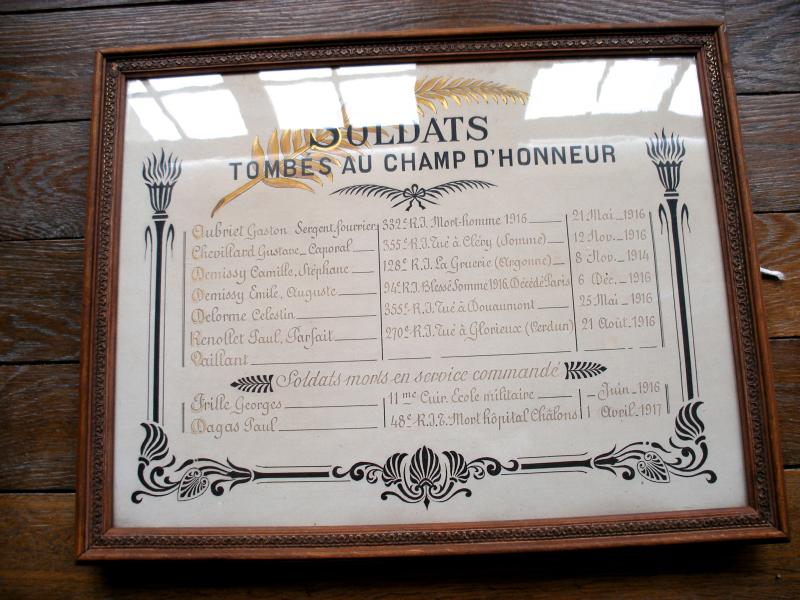 SOLDATS
TOMBÉS AU CHAMP D'HONNEUR
Aubriet Gaston Sergent fourrier 332e R.I. Mort-homme 1916 21 Mai 1916
Chevillard Gustave Caporal 355e R.I. Tué à Cléry (Somme) 12 Nov. 1916
Demissy Camille, Stéphane 128e R.I. La Gruerie (Argonne) 8 Nov. 1914
Demissy Emile, Auguste 94e R.I. Blessé Somme 1916, Décédé Paris 6 Déc. 1916
Delorme Célestin 355e R.I. Tué à Douaumont 25 Mai 1916
Renollet Paul, Parfait 270e R.I. Tué à Glorieux (Verdun) 21 Août 1916
Vaillant
Soldats morts en service commandé
Frille Georges 11me Cuir. École militaire - Juin 1916
Dagas Paul 48e R.I.T. Mort hôpital Châlons 11 Avril 1917